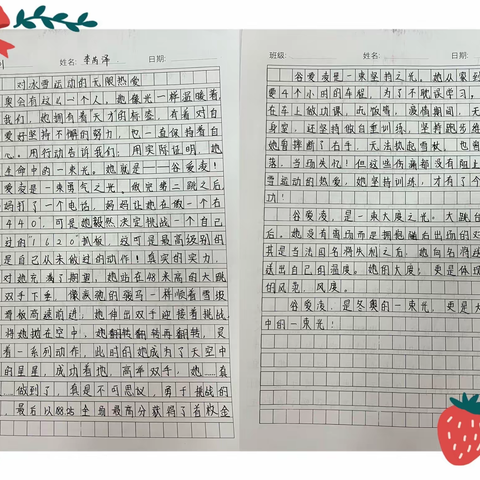 姓名:李尚泽 日期:
对冰雪运动的无限热爱
奥会有这么一个人,她像光一样温暖着
我们,她拥有着天才的标签,有着对自
爱好坚持不懈的努力,也一直保持着自
心。用行动告诉我们,用实际证明,她
生命中的一束光。她就是——谷爱凌!
爱凌是一束勇气之光。做完第二跳之后
妈打了一个电话,妈妈让她在做一个右
440,可是她毅然决定挑战一个自己
过的"1620"扒板,这可是最高级别的
是自己从未做过的动作!真实的实力,
对她充满了期望,她站在48米高的大跳
双手下垂,像疾驰的骏马一样顺着雪坡
滑板高速前进,她伸出双手迎接着挑战
将她抛在空中,她翻转翻转再翻转,是
着一系列动作,此时的她成为了天空中
的星星,成功着地,高举双手,她
做到了,真是不可思议,勇于挑战的
最后以 的最高分获得了首枚金
班级: 姓名: 日期:
谷爱凌是一束坚持之光。她从家到
要4个小时的车程,为了不耽误学习,
在车上做功课,吃饭等,疫情期间,无
身室,还坚持做自重训练,坚持跑步
她曾摔断了右手,无法执起雪杖,也曾
落,当场失忆!但这些伤痛都没有阻止
雪运动的热爱,她坚持训练,才有了今
功!
谷爱凌,是一束大度之光。大跳台
后。她没有离场而是拥抱
其是当法国名将失利之后。她向名将
送出自己的温度。她的大度,更是体现
的风范,风度。
谷爱凌,是冬奥的一束光,更是
中的一束光!